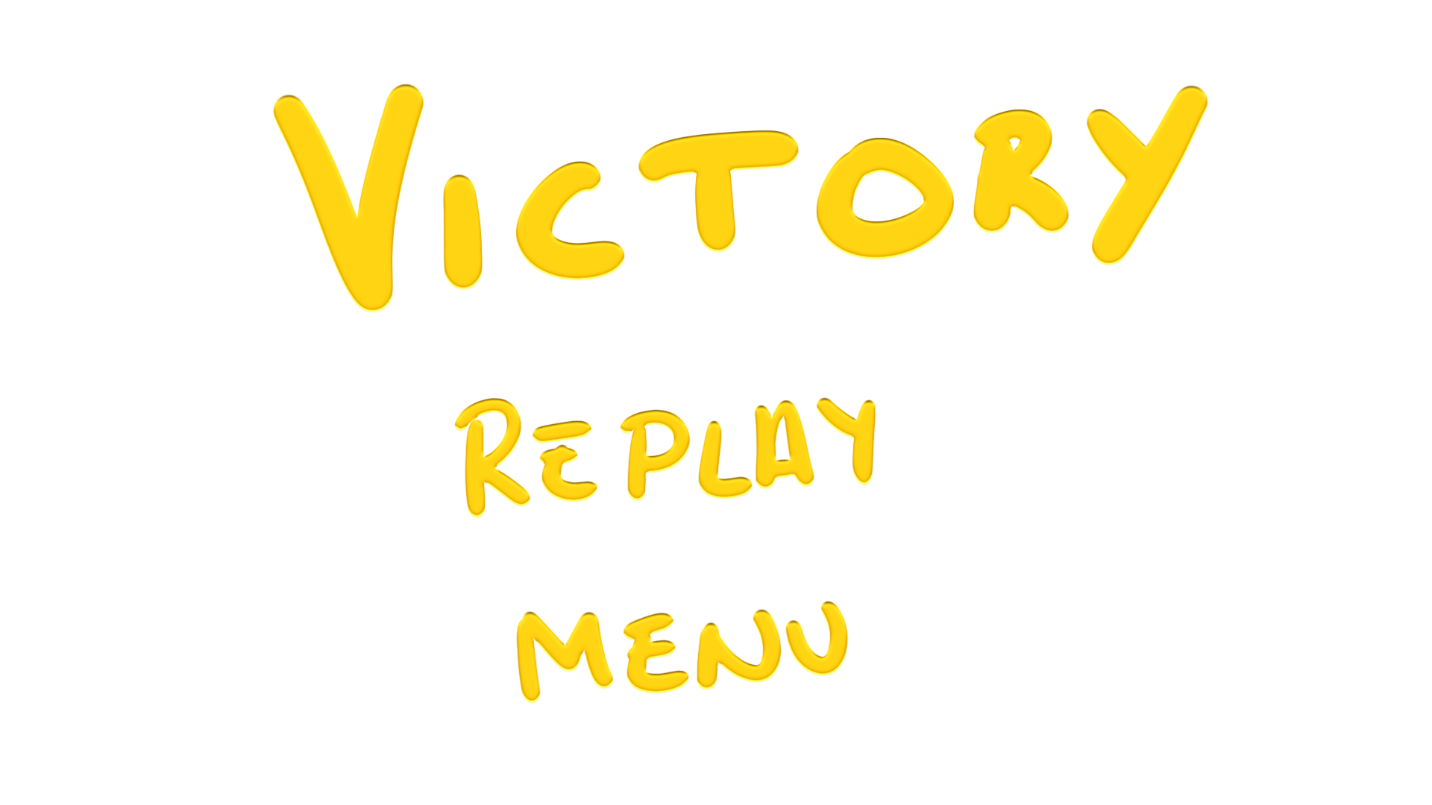 VICTORY
REPLAY
MENU